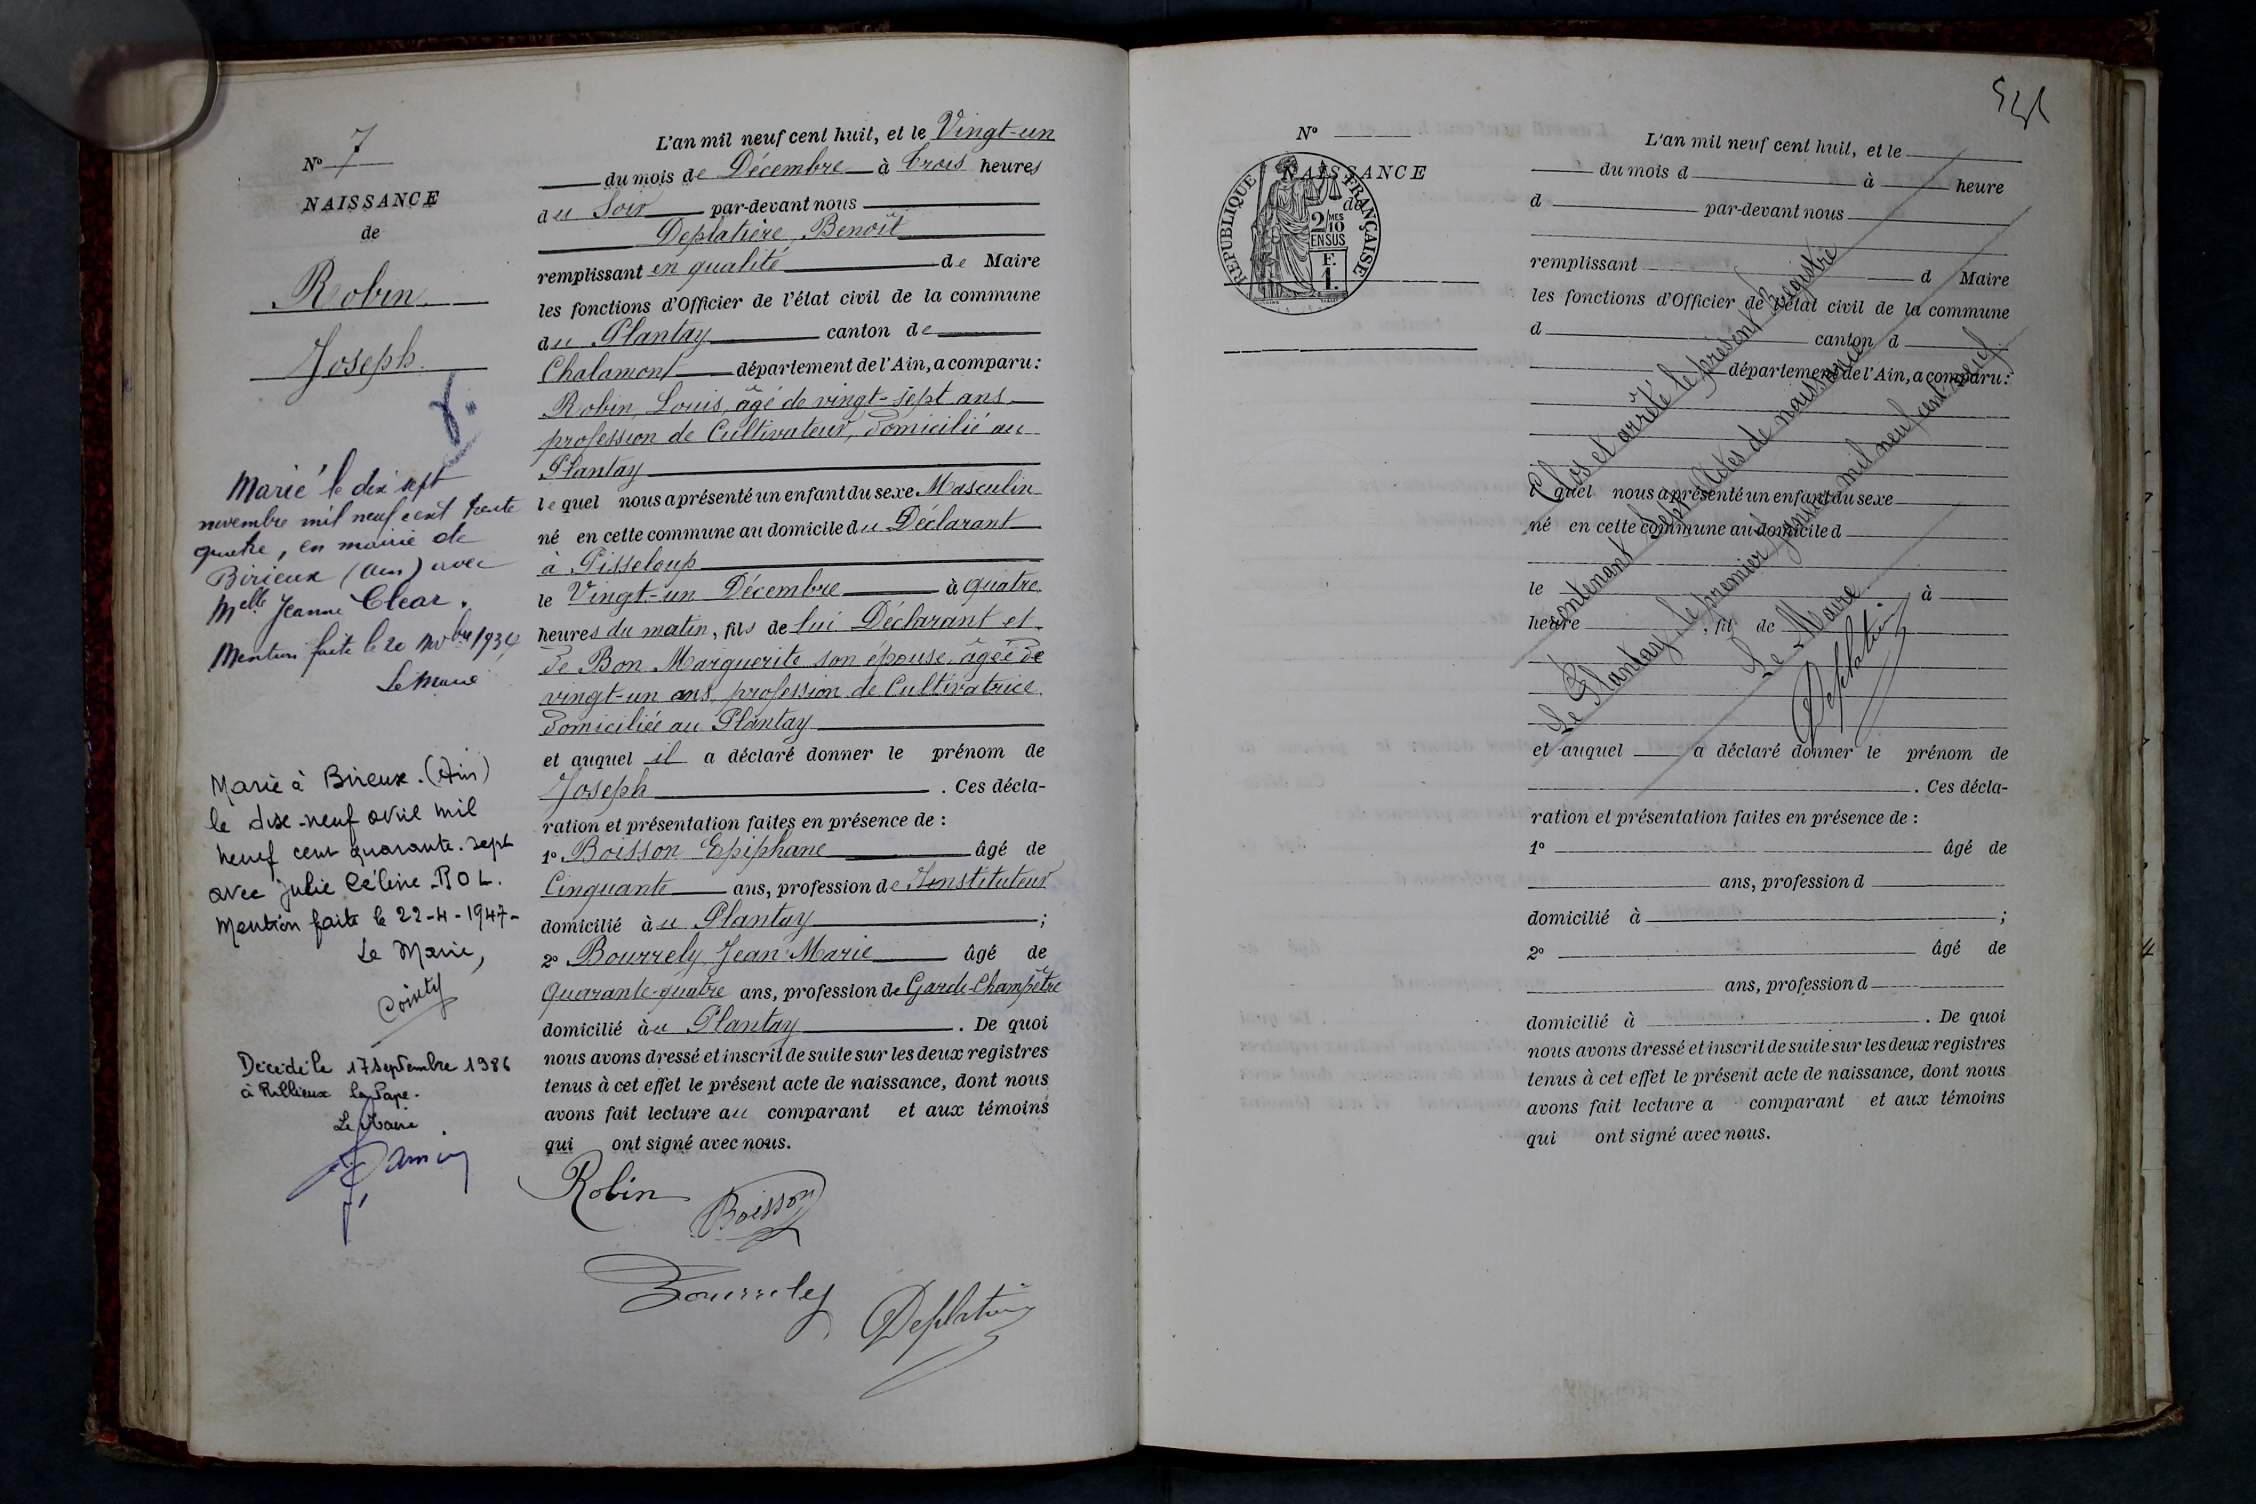 N° 7
NAISSANCE
de
Robin
Joseph
Marié le dix sept
novembre mil neuf cent trente
quatre, en mairie de
Birieux (Ain) avec
Melle Jeanne Clear.
Mention faite le 20 Nobre 1934
Le Maire
Marié à Birieux. (Ain)
le dix-neuf avril mil
neuf cent quarante-sept
avec Julie Céline BOL.
Mention faite le 22-4-1947-
Le Maire,
Décédé le 17 septembre 1986
à Rillieux la Pape.
Le Maire
L'an mil neuf cent huit, et le Vingt-un
du mois de Décembre à trois heures
du Soir par-devant nous
Deplatière, Benoît
remplissant en qualité de Maire
les fonctions d'Officier de l'état civil de la commune
du Plantay canton de
Chalamont département de l'Ain, a comparu:
Robin, Louis, âgé de vingt-sept ans
profession de Cultivateur, domicilié au
Plantay
lequel nous a présenté un enfant du sexe Masculin
né en cette commune au domicile du Déclarant
à Pisseloup
le Vingt-un Décembre à quatre
heures du matin, fils de lui Déclarant et
de Bon Marguerite son épouse, âgée de
vingt-un ans, profession de Cultivatrice
domiciliée au Plantay
et auquel il a déclaré donner le prénom de
Joseph. Ces décla-
ration et présentation faites en présence de :
1° Boisson Epiphane âgé de
Cinquante ans, profession de Instituteur
domicilié àu Plantay ;
2° Bourrely Jean Marie âgé de
Quarante-quatre ans, profession de Garde-Champêtre
domicilié àu Plantay. De quoi
nous avons dressé et inscrit de suite sur les deux registres
tenus à cet effet le présent acte de naissance, dont nous
avons fait lecture au comparant et aux témoins
qui ont signé avec nous.
Robin
Boisson
Bourreley
Deplatière
N°
NAISSANCE
de
RÉPUBLIQUE FRANÇAISE
2/10 MES
EN SUS
F.
1.
L'an mil neuf cent huit, et le
du mois d à heure
d par-devant nous
remplissant d Maire
les fonctions d'Officier de l'état civil de la commune
d canton d
département de l'Ain, a comparu:
l quel nous a présenté un enfant du sexe
né en cette commune au domicile d
le à
heure , fil de
et auquel a déclaré donner le prénom de
. Ces décla-
ration et présentation faites en présence de :
1° âgé de
ans, profession d
domicilié à ;
2° âgé de
ans, profession d
domicilié à . De quoi
nous avons dressé et inscrit de suite sur les deux registres
tenus à cet effet le présent acte de naissance, dont nous
avons fait lecture a comparant et aux témoins
qui ont signé avec nous.
Clos et arrêté le présent registre
contenant sept actes de naissance
Le Plantay, le premier janvier mil neuf cent neuf.
Le Maire
Deplatière